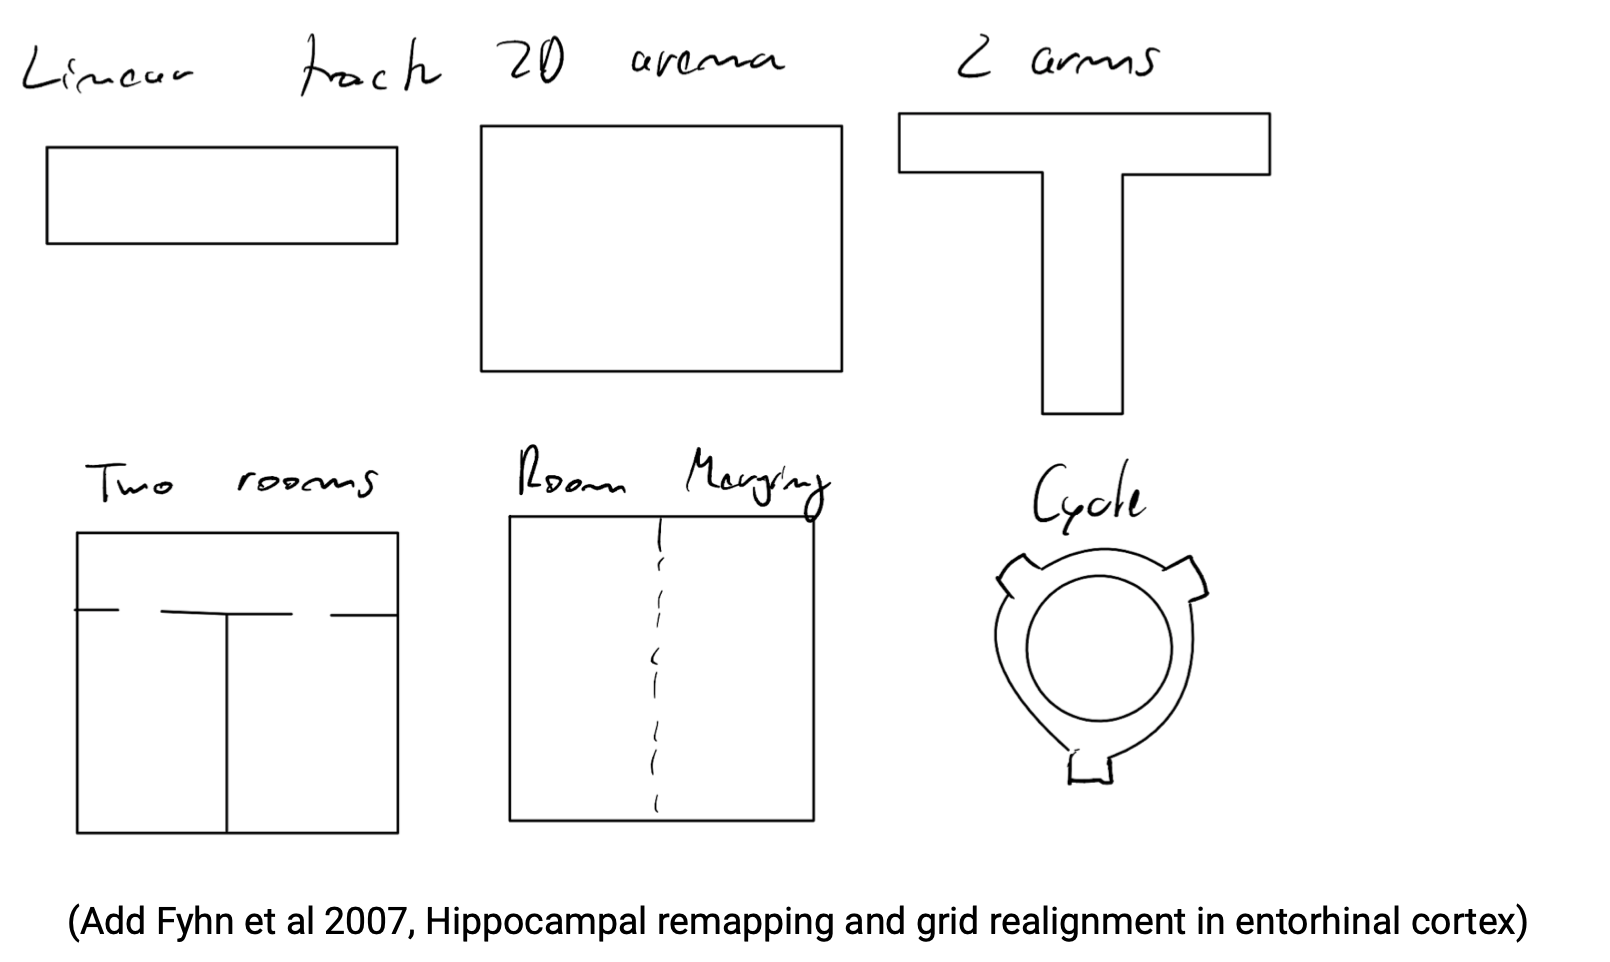 Linear track 2D arena 2 arms
Two rooms Room Merging Cycle
(Add Fyhn et al 2007, Hippocampal remapping and grid realignment in entorhinal cortex)